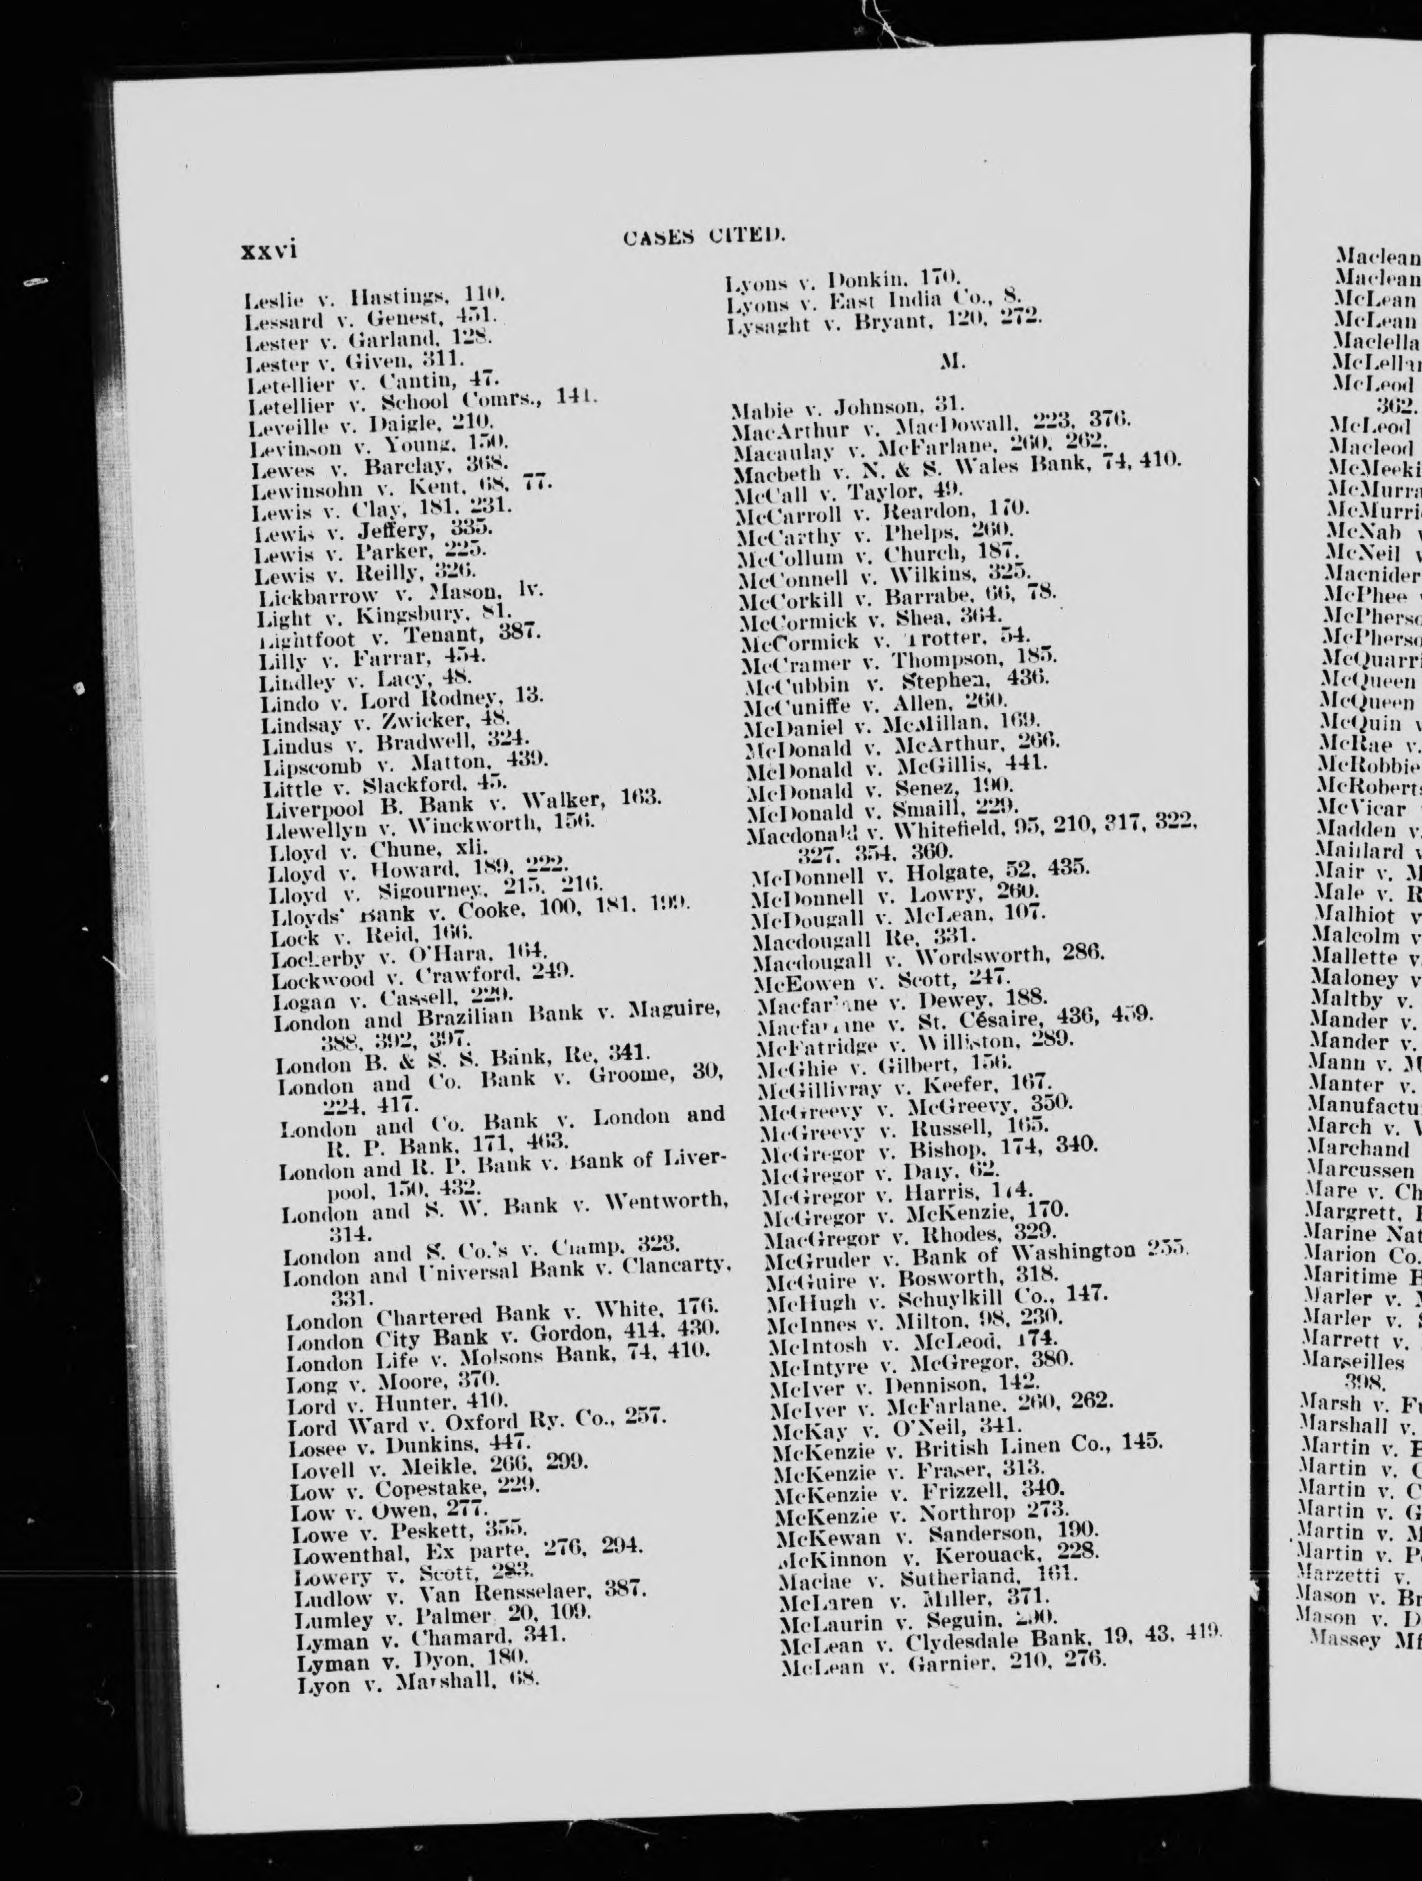 xxvi
CASES CITED.
Leslie v. Hastings, 110.
Lessard v. Genest, 451.
Lester v. Garland, 128.
Lester v. Given, 311.
Letellier v. Cantin, 47.
Letellier v. School Comrs., 141.
Leveille v. Daigle, 210.
Levinson v. Young, 150.
Lewes v. Barclay, 368.
Lewinsohn v. Kent, 68, 77.
Lewis v. Clay, 181, 231.
Lewis v. Jeffery, 335.
Lewis v. Parker, 225.
Lewis v. Reilly, 326.
Lickbarrow v. Mason, lv.
Light v. Kingsbury, 81.
Lightfoot v. Tenant, 387.
Lilly v. Farrar, 454.
Lindley v. Lacy, 48.
Lindo v. Lord Rodney, 13.
Lindsay v. Zwicker, 48.
Lindus v. Bradwell, 324.
Lipscomb v. Matton, 439.
Little v. Slackford, 45.
Liverpool B. Bank v. Walker, 163.
Llewellyn v. Winckworth, 156.
Lloyd v. Chune, xli.
Lloyd v. Howard, 189, 222.
Lloyd v. Sigourney, 215, 216.
Lloyds' Bank v. Cooke, 100, 181, 199.
Lock v. Reid, 166.
Lockerby v. O'Hara, 164.
Lockwood v. Crawford, 249.
Logan v. Cassell, 229.
London and Brazilian Bank v. Maguire,
388, 392, 397.
London B. & S. S. Bank, Re, 341.
London and Co. Bank v. Groome, 30,
224, 417.
London and Co. Bank v. London and
R. P. Bank, 171, 463.
London and R. P. Bank v. Bank of Liver-
pool, 150, 432.
London and S. W. Bank v. Wentworth,
314.
London and S. Co.'s v. Clamp, 323.
London and Universal Bank v. Clancarty,
331.
London Chartered Bank v. White, 176.
London City Bank v. Gordon, 414, 430.
London Life v. Molsons Bank, 74, 410.
Long v. Moore, 370.
Lord v. Hunter, 410.
Lord Ward v. Oxford Ry. Co., 257.
Losee v. Dunkins, 447.
Lovell v. Meikle, 266, 299.
Low v. Copestake, 229.
Low v. Owen, 277.
Lowe v. Peskett, 355.
Lowenthal, Ex parte, 276, 294.
Lowery v. Scott, 283.
Ludlow v. Van Rensselaer, 387.
Lumley v. Palmer 20, 109.
Lyman v. Chamard, 341.
Lyman v. Dyon, 180.
Lyon v. Marshall, 68.
Lyons v. Donkin, 170.
Lyons v. East India Co., 8.
Lysaght v. Bryant, 120, 272.
M.
Mabie v. Johnson, 31.
MacArthur v. MacDowall, 223, 376.
Macaulay v. McFarlane, 260, 262.
Macbeth v. N. & S. Wales Bank, 74, 410.
McCall v. Taylor, 49.
McCarroll v. Reardon, 170.
McCarthy v. Phelps, 260.
McCollum v. Church, 187.
McConnell v. Wilkins, 325.
McCorkill v. Barrabe, 66, 78.
McCormick v. Shea, 364.
McCormick v. Trotter, 54.
McCramer v. Thompson, 185.
McCubbin v. Stephen, 436.
McCuniffe v. Allen, 260.
McDaniel v. McMillan, 169.
McDonald v. McArthur, 266.
McDonald v. McGillis, 441.
McDonald v. Senez, 190.
McDonald v. Smaill, 229.
Macdonald v. Whitefield, 95, 210, 317, 322,
327, 354, 360.
McDonnell v. Holgate, 52, 435.
McDonnell v. Lowry, 260.
McDougall v. McLean, 107.
Macdougall Re, 331.
Macdougall v. Wordsworth, 286.
McEowen v. Scott, 247.
Macfarlane v. Dewey, 188.
Macfarlane v. St. Césaire, 436, 459.
McFatridge v. Williston, 289.
McGhie v. Gilbert, 156.
McGillivray v. Keefer, 167.
McGreevy v. McGreevy, 350.
McGreevy v. Russell, 165.
McGregor v. Bishop, 174, 340.
McGregor v. Daly, 62.
McGregor v. Harris, 174.
McGregor v. McKenzie, 170.
MacGregor v. Rhodes, 329.
McGruder v. Bank of Washington 255.
McGuire v. Bosworth, 318.
McHugh v. Schuylkill Co., 147.
McInnes v. Milton, 98, 230.
McIntosh v. McLeod, 174.
McIntyre v. McGregor, 380.
McIver v. Dennison, 142.
McIver v. McFarlane, 260, 262.
McKay v. O'Neil, 341.
McKenzie v. British Linen Co., 145.
McKenzie v. Fraser, 313.
McKenzie v. Frizzell, 340.
McKenzie v. Northrop 273.
McKewan v. Sanderson, 190.
McKinnon v. Kerouack, 228.
Maclae v. Sutherland, 161.
McLaren v. Miller, 371.
McLaurin v. Seguin,
McLean v. Clydesdale Bank, 19, 43, 419.
McLean v. Garnier, 210, 276.
Maclean
Maclean
McLean
McLean
Maclella
McLellan
McLeod
362.
McLeod
Macleod
McMeeki
McMurra
McMurri
McNab v
McNeil v
Macnider
McPhee
McPherso
McPherso
McQuarri
McQueen
McQueen
McQuin v
McRae v.
McRobbie
McRoberts
McVicar
Madden v.
Maillard v
Mair v. M
Male v. R
Malhiot v
Malcolm v
Mallette v.
Maloney v
Maltby v.
Mander v.
Mander v.
Mann v. M
Manter v.
Manufactu
March v. W
Marchand
Marcussen
Mare v. Ch
Margrett,
Marine Nat
Marion Co.
Maritime B
Marler v.
Marler v. S
Marrett v.
Marseilles
398.
Marsh v. Fu
Marshall v.
Martin v. B
Martin v. C
Martin v. C
Martin v. G
Martin v. M
Martin v. P
Marzetti v.
Mason v. Br
Mason v. D
Massey Mf